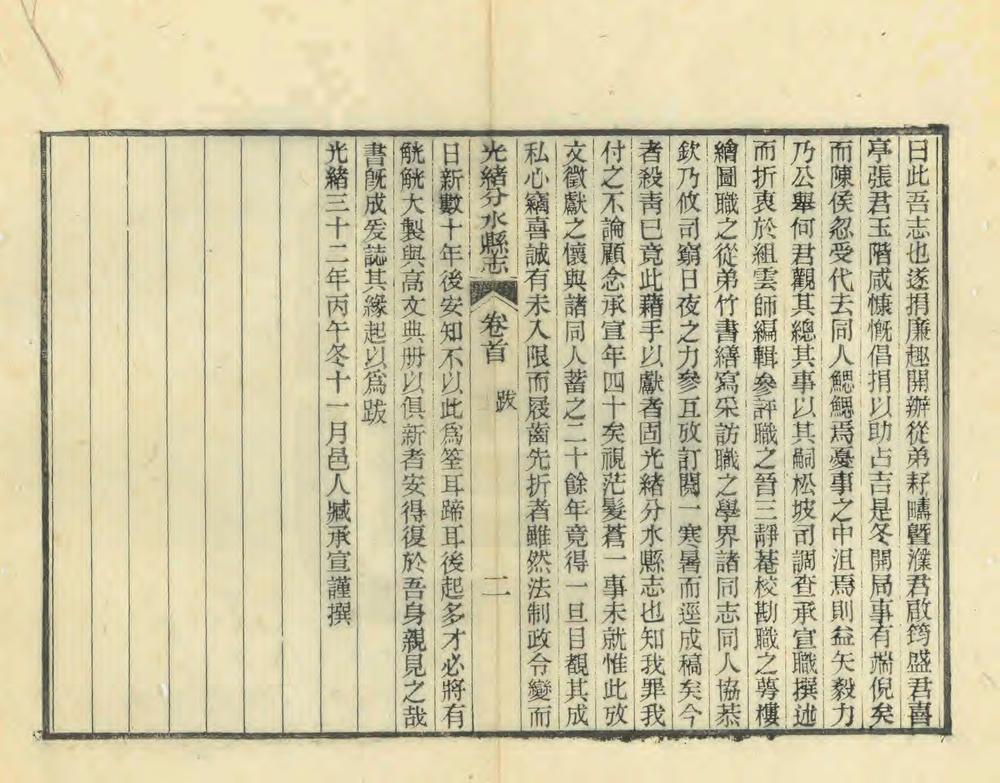 曰此吾志也遂捐廉趣開辦從弟耔疇曁濮君啟筠盛君喜
亭張君玉階咸慷慨倡捐以助占吉是冬開局事有端倪矣
而陳侯忽受代去同人鰓鰓焉憂事之中沮焉則益矢毅力
乃公舉何君觀其總其事以其嗣松坡司調查承宣職撰述
而折衷於組雲師編輯參評職之晉三靜菴校勘職之蕚樓
繪圖職之從弟竹書繕寫采訪職之學界諸同志同人協恭
欽乃攸司窮日夜之力參互攷訂閱一寒暑而逕成稿矣今
者殺靑已竟此藉手以獻者固光緒分水縣志也知我罪我
付之不論顧念承宣年四十矣視茫髮蒼一事未就惟此攷
文徵獻之懷與諸同人蓄之二十餘年竟得一旦目覩其成
私心竊喜誠有未入限而屐齒先折者雖然法制政令變而
光緒分水縣志 卷首 跋 二
日新數十年後安知不以此爲筌耳蹄耳後起多才必將有
觥觥大製與高文典册以俱新者安得復於吾身親見之哉
書旣成爰誌其緣起以爲跋
光緒三十二年丙午冬十一月邑人臧承宣謹撰